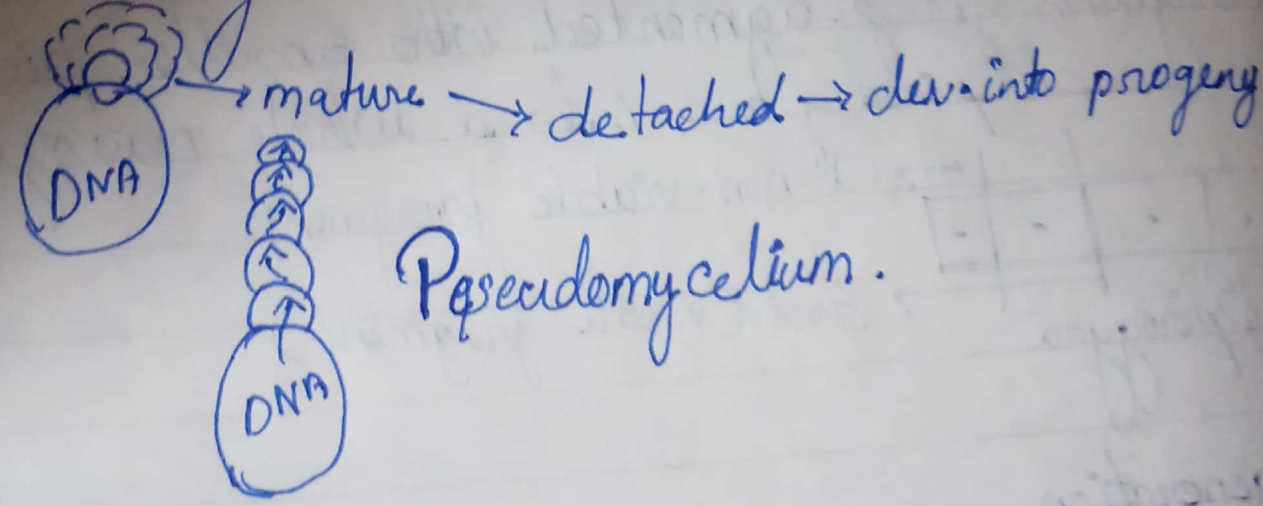 mature → detached → dev. into progeny
DNA
Pseudomycelium.
DNA